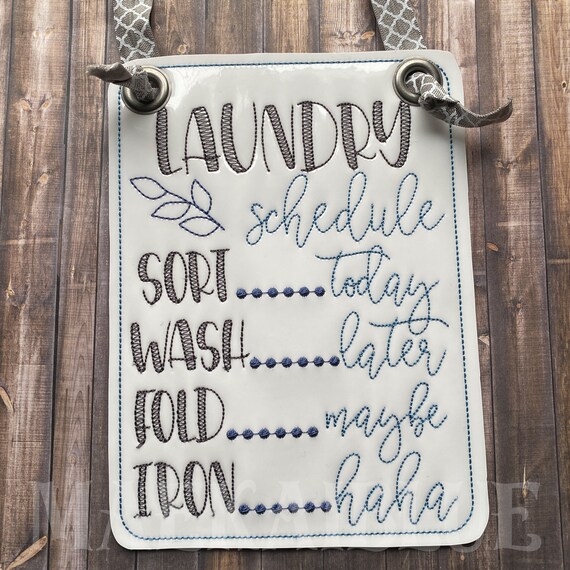 LAUNDRY
schedule
SORT today
WASH later
FOLD maybe
IRON haha